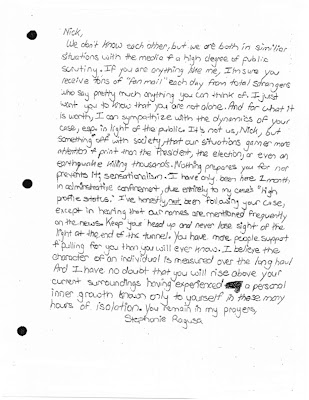 Nick,
We don't know each other, but we are both in similar
situations with the media & a high degree of public
scrutiny. If you are anything like me, I'm sure you
receive tons of "fan mail" each day from total strangers
who say pretty much anything you can think of. I just
want you to know that you are not alone. And for what it
is worth, I can sympathize with the dynamics of your
case, esp. in light of the public. It's not us, Nick, but
something off with society, that our situations garner more
attention & print than the President, the election, or even an
earthquake killing thousands. Nothing prepares you for nor
prevents its sensationalism. I have only been here 1 month
in administrative confinement, due entirely to my case's "high
profile status." I've honestly not been following your case,
except in hearing that our names are mentioned frequently
on the news. Keep your head up and never lose sight of the
light at the end of the tunnel. You have more people support
& pulling for you than you will ever know. I believe the
character of an individual is measured over the long haul
And I have no doubt that you will rise above your
current surroundings having experienced a personal
inner growth known only to yourself in these many
hours of isolation. You remain in my prayers,
Stephanie Ragusa